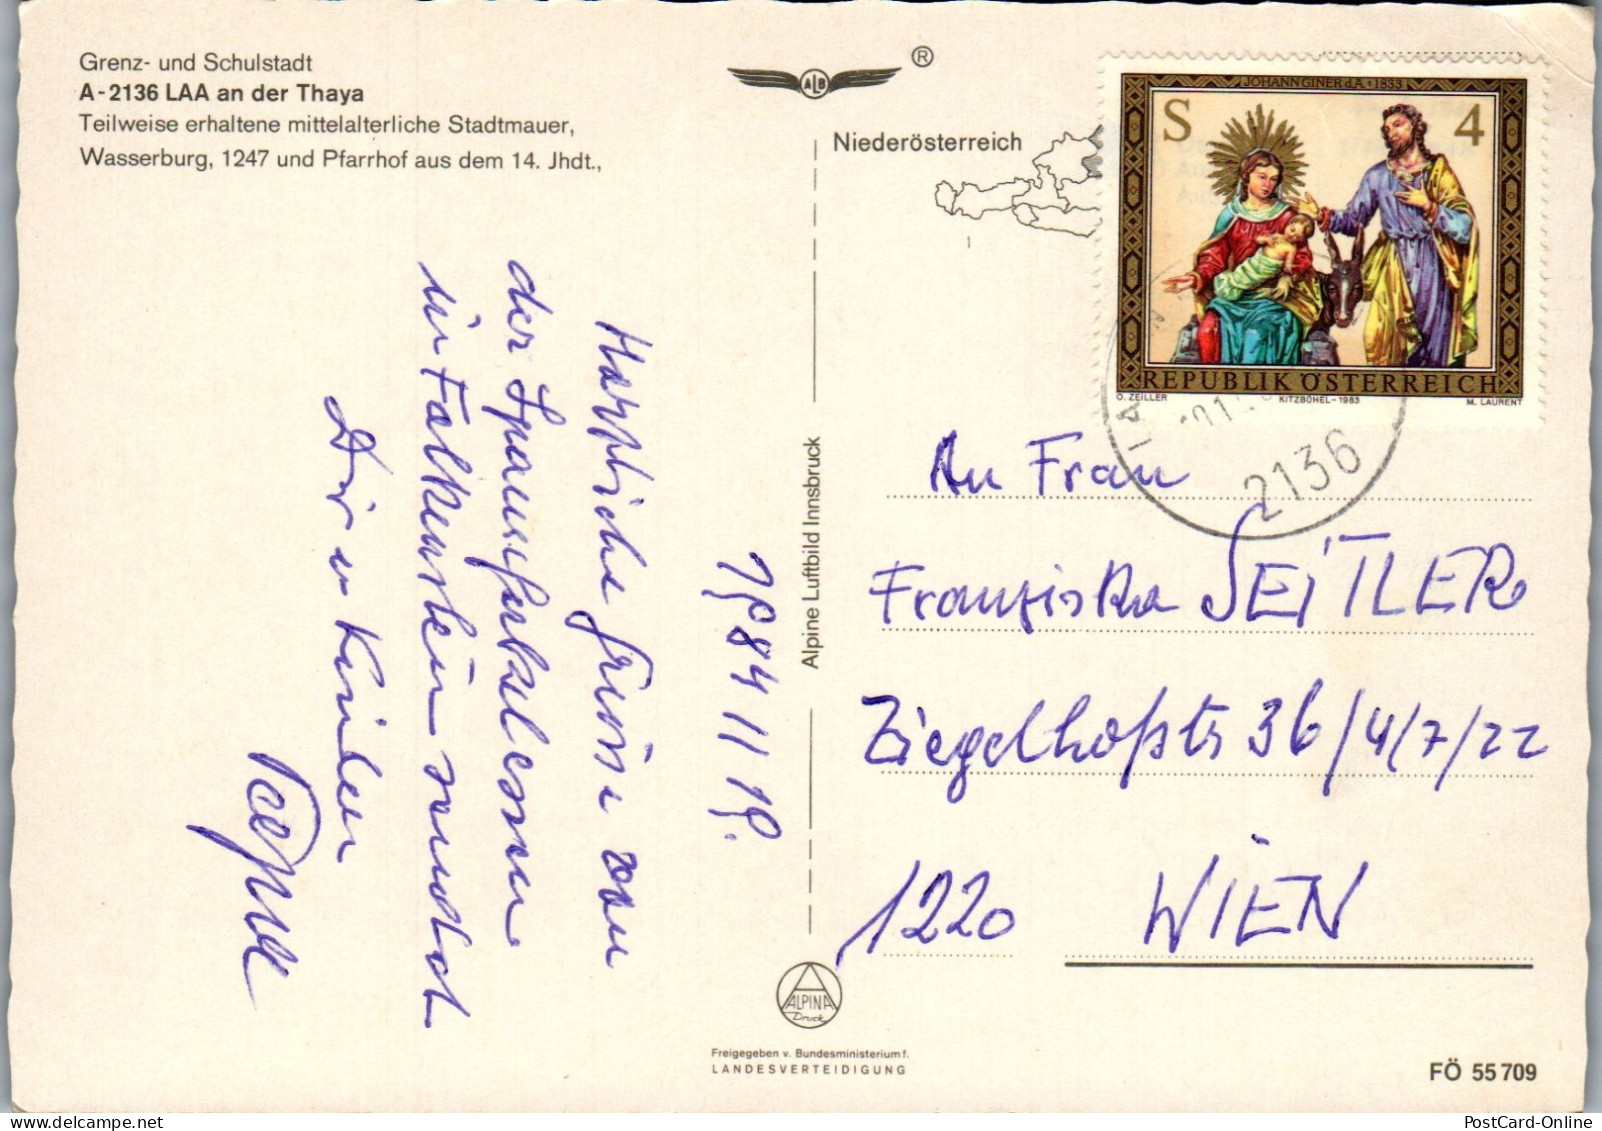 Grenz- und Schulstadt
A-2136 LAA an der Thaya
Teilweise erhaltene mittelalterliche Stadtmauer,
Wasserburg, 1247 und Pfarrhof aus dem 14. Jhdt.,
ALB
®
Niederösterreich
JOHANN GINER d.Ä. • 1833
S 4
REPUBLIK ÖSTERREICH
O. ZEILLER KITZBÜHEL-1983 M. LAURENT
2136
1984 11 19.
Herzliche Grüsse von
der Spanferkelessen
in Falkenstein sendet
Dir u Kinder
Alpine Luftbild Innsbruck
An Frau
Franziska SEITLER
Ziegelhofstr 36/4/7/22
1220 WIEN
ALPINA
Druck
Freigegeben v. Bundesministerium f.
LANDESVERTEIDIGUNG
FÖ 55 709
PostCard-Online